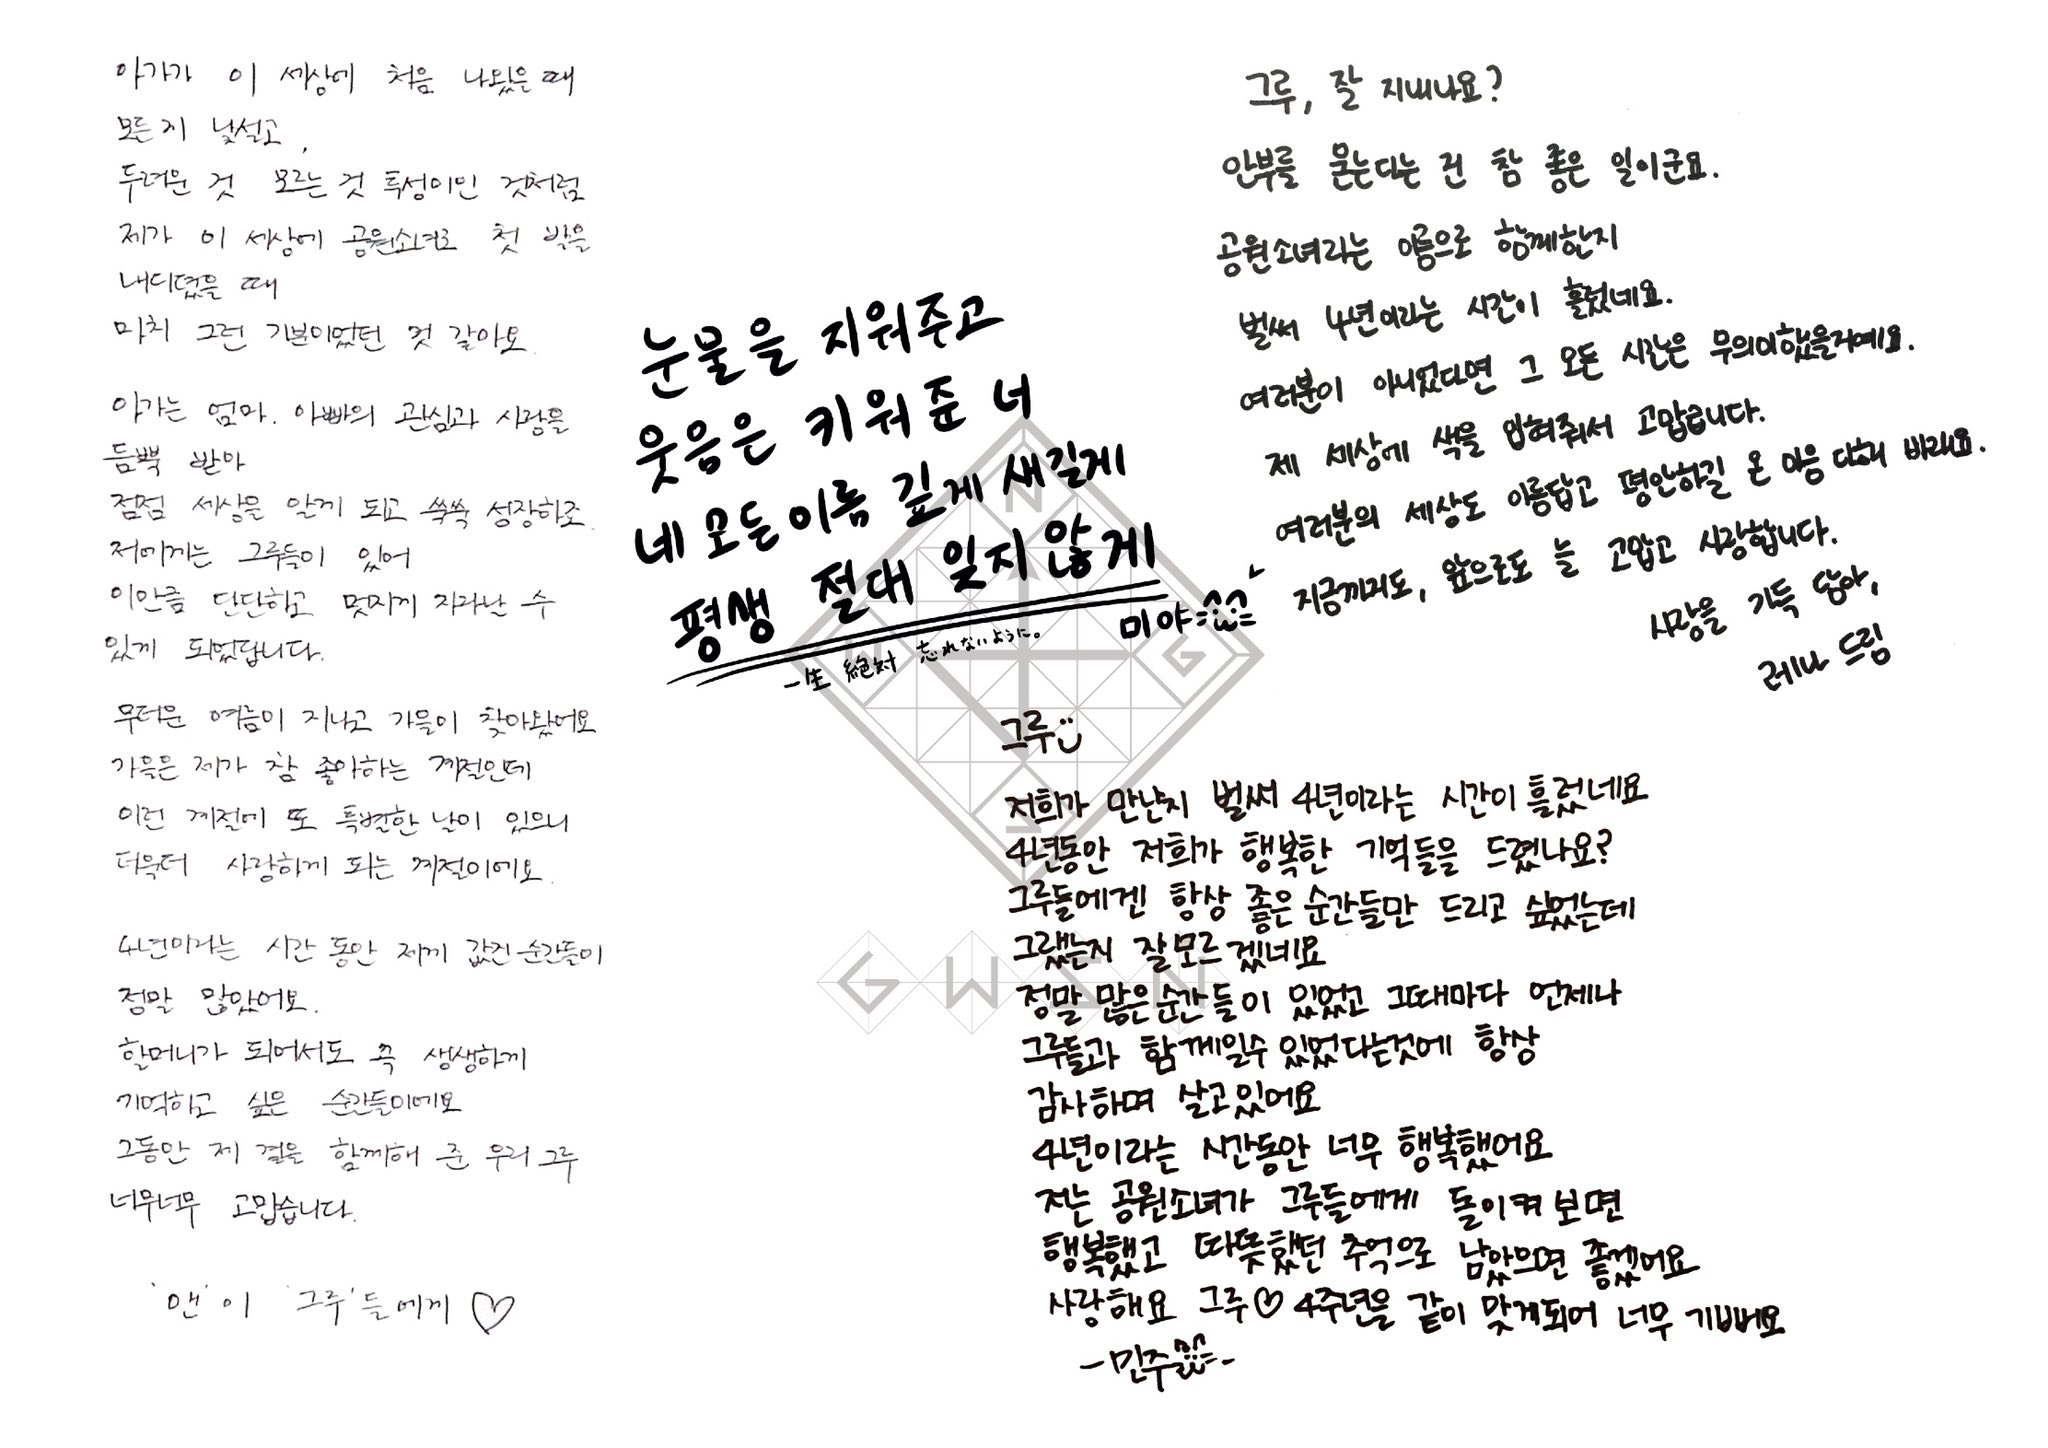 아가가 이 세상에 처음 나왔을 때
모든지 낯설고,
두려운 것 모르는 것 투성이인 것처럼
제가 이 세상에 공원소녀로 첫 발을
내디뎠을 때
마치 그런 기분이었던 것 같아요.
아가는 엄마. 아빠의 관심과 사랑을
듬뿍 받아
점점 세상을 알게 되고 쑥쑥 성장하죠.
저에게는 그루들이 있어
이만큼 단단하고 멋지게 자라난 수
있게 되었답니다.
무더운 여름이 지나고 가을이 찾아왔어요
가을은 제가 참 좋아하는 계절인데
이런 계절에 또 특별한 날이 있으니
더욱더 사랑하게 되는 계절이에요.
4년이라는 시간 동안 제게 값진 순간들이
정말 많았어요.
할머니가 되어서도 꼭 생생하게
기억하고 싶은 순간들이에요
그동안 제 곁을 함께해 준 우리 그루
너무너무 고맙습니다.
'앤'이 '그루'들에게 ♡
눈물을 지워주고
웃음은 키워준 너
네 모든 이름 깊게 새길게
평생 절대 잊지 않게
一生 絶対 忘れないように。
미야
그루, 잘 지내나요?
안부를 묻는다는 건 참 좋은 일이군요.
공원소녀라는 이름으로 함께한지
벌써 4년이라는 시간이 흘렀네요.
여러분이 아니었다면 그 모든 시간은 무의미했을거예요.
제 세상에 색을 입혀줘서 고맙습니다.
여러분의 세상도 아름답고 평안하길 온 마음 다해 바래요.
지금까지도, 앞으로도 늘 고맙고 사랑합니다.
사랑을 가득 담아,
레나 드림
그루
저희가 만난지 벌써 4년이라는 시간이 흘렀네요
4년동안 저희가 행복한 기억들을 드렸나요?
그루들에겐 항상 좋은 순간들만 드리고 싶었는데
그랬는지 잘모르겠네요
정말 많은순간들이 있었고 그때마다 언제나
그루들과 함께일수 있었다는것에 항상
감사하며 살고있어요
4년이라는 시간동안 너무 행복했어요
저는 공원소녀가 그루들에게 돌이켜 보면
행복했고 따뜻했던 추억으로 남았으면 좋겠어요
사랑해요 그루♡ 4주년을 같이 맞게되어 너무 기뻐요
-민주-
N
W
G
S
GWSN